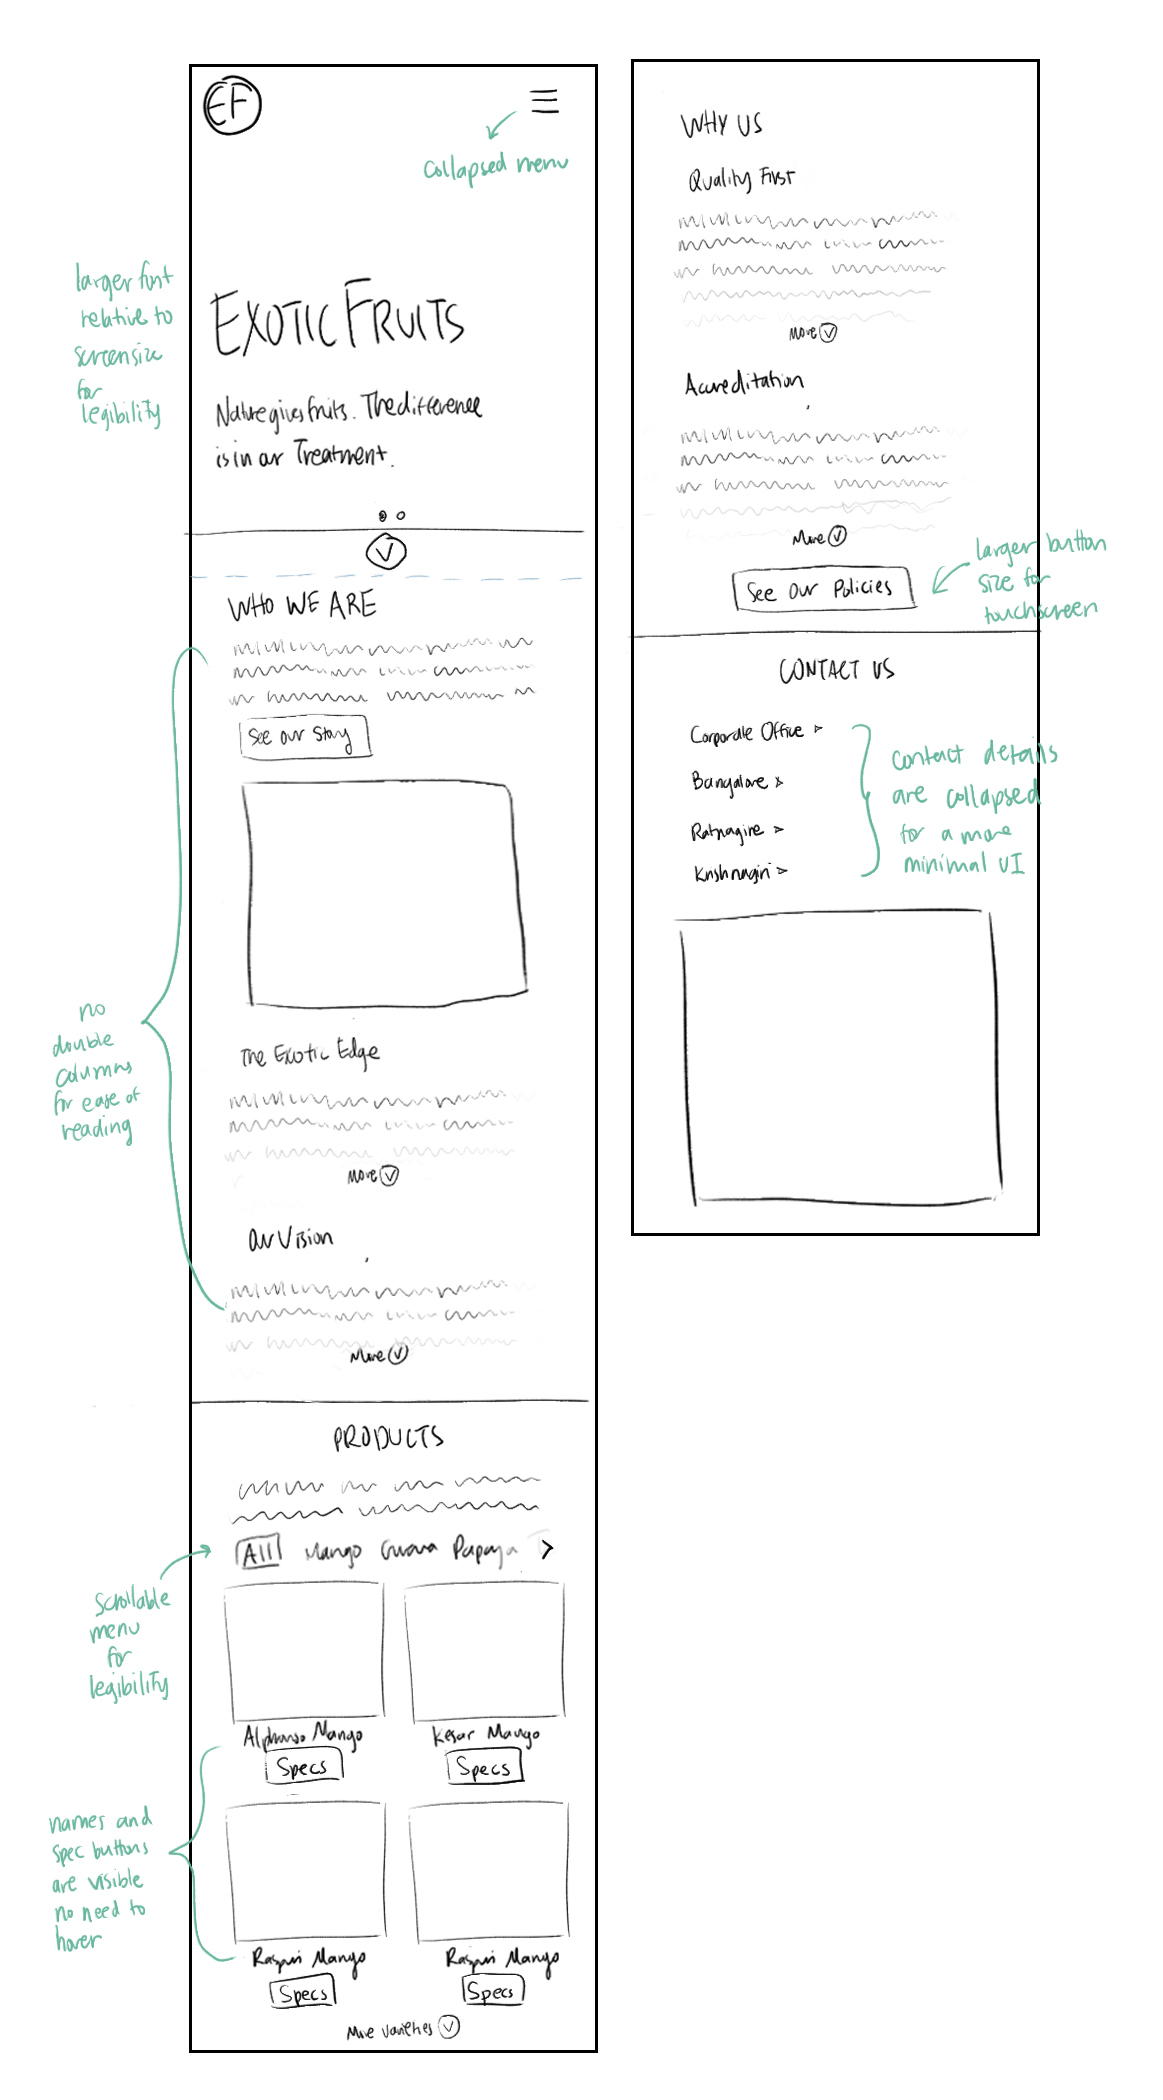 EF
collapsed menu
larger font
relative to
screensize
for
legibility
EXOTIC FRUITS
Nature gives fruits. The difference
is in our Treatment.
WHO WE ARE
See our Story
no
double
columns
for ease of
reading
The Exotic Edge
More
Our Vision
More
PRODUCTS
All Mango Guava Papaya
scrollable
menu
for
legibility
Alphonso Mango
Kesar Mango
Specs
Specs
names and
spec buttons
are visible
no need to
hover
Raspuri Mango
Raspuri Mango
Specs
Specs
More varieties
WHY US
Quality First
More
Accreditation
More
See Our Policies
larger button
size for
touchscreen
CONTACT US
Corporate Office
Bangalore
Ratnagire
Krishnagiri
contact details
are collapsed
for a more
minimal UI